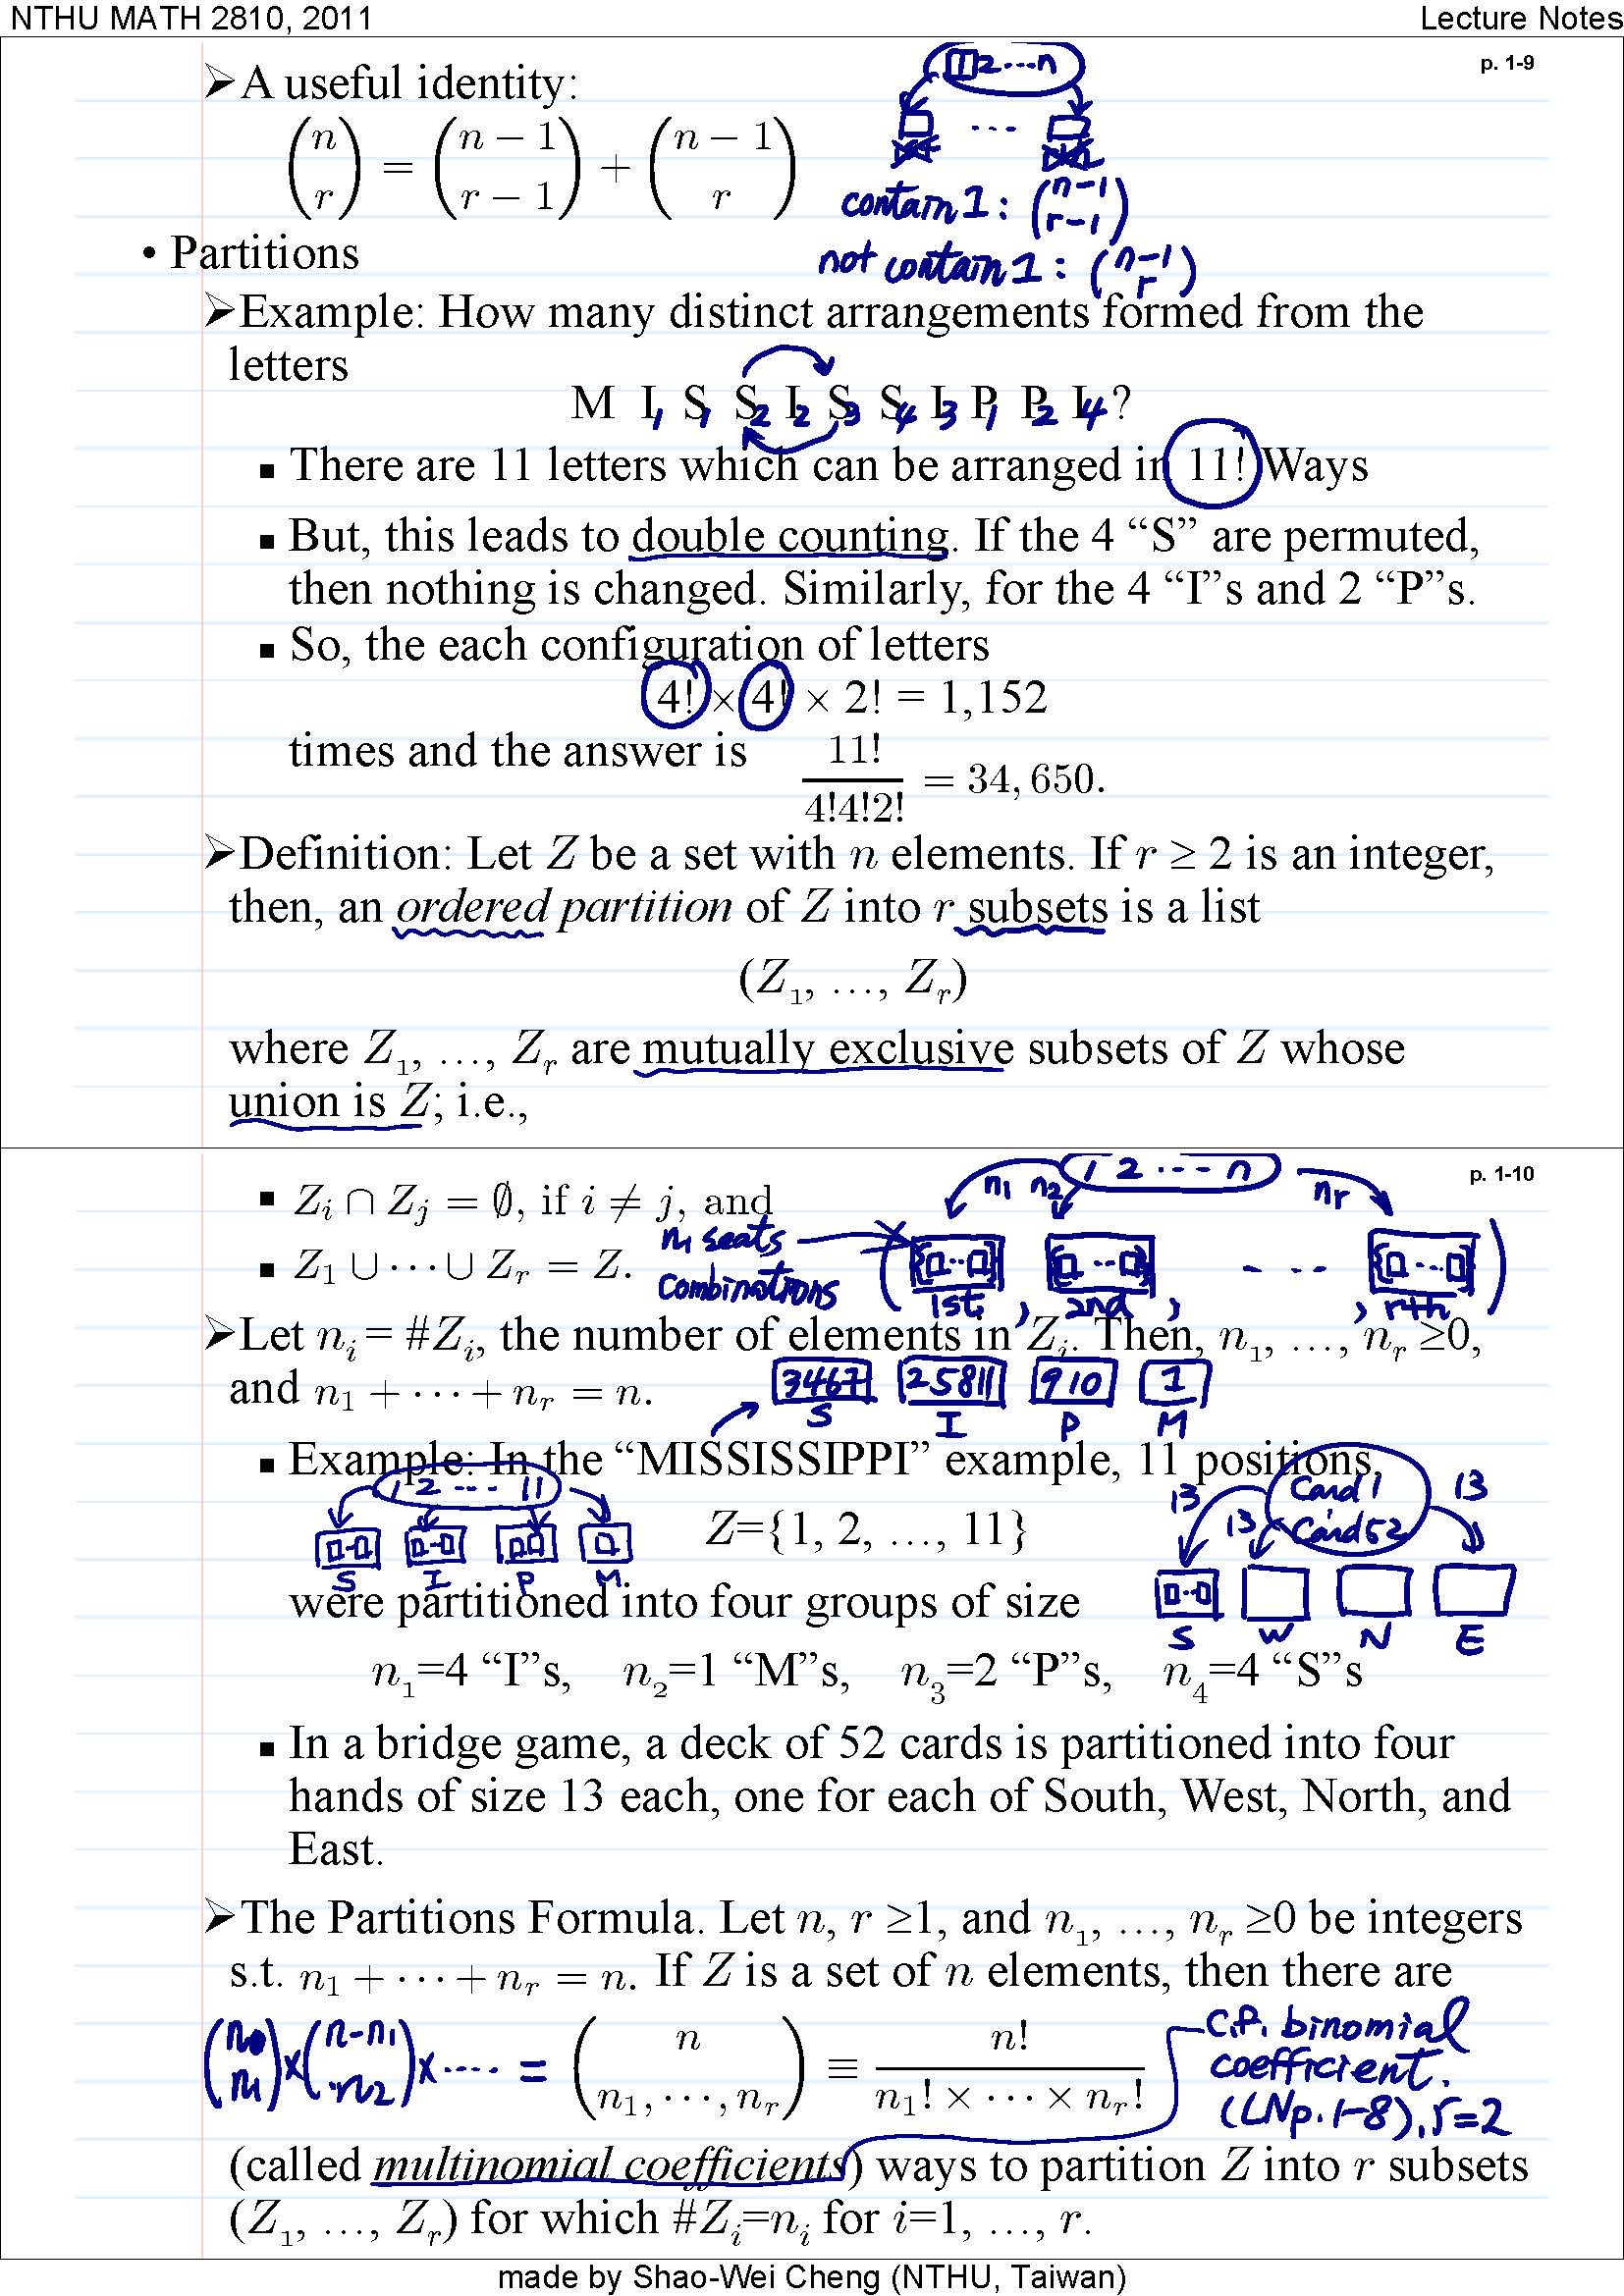 NTHU MATH 2810, 2011 Lecture Notes
p. 1-9
1 2 ... n
➢A useful identity:
(n r) = (n − 1 r − 1) + (n − 1 r)
...
contain 1 : (n−1 r−1)
not contain 1 : (n−1 r)
• Partitions
➢Example: How many distinct arrangements formed from the
letters
M I1 S1 S2 I2 S3 S4 I3 P1 P2 I4 ?
▪ There are 11 letters which can be arranged in 11! Ways
▪ But, this leads to double counting. If the 4 “S” are permuted,
then nothing is changed. Similarly, for the 4 “I”s and 2 “P”s.
▪ So, the each configuration of letters
4! × 4! × 2! = 1,152
times and the answer is 11! / 4!4!2! = 34,650.
➢Definition: Let Z be a set with n elements. If r ≥ 2 is an integer,
then, an ordered partition of Z into r subsets is a list
(Z1, …, Zr)
where Z1, …, Zr are mutually exclusive subsets of Z whose
union is Z; i.e.,
p. 1-10
1 2 ... n
n1 n2 nr
▪ Zi ∩ Zj = ∅, if i ≠ j, and
▪ Z1 ∪ ⋯ ∪ Zr = Z.
n1 seats
combinations
( 1st , 2nd , ... , rth )
➢Let ni = #Zi, the number of elements in Zi. Then, n1, …, nr ≥0,
and n1 + ⋯ + nr = n.
3467 25811 910 1
S I P M
▪ Example: In the “MISSISSIPPI” example, 11 positions,
1 2 ... 11
Card 1
Card 52
13 13 13
Z={1, 2, …, 11}
S I P M
were partitioned into four groups of size
S W N E
n1=4 “I”s, n2=1 “M”s, n3=2 “P”s, n4=4 “S”s
▪ In a bridge game, a deck of 52 cards is partitioned into four
hands of size 13 each, one for each of South, West, North, and
East.
➢The Partitions Formula. Let n, r ≥1, and n1, …, nr ≥0 be integers
s.t. n1 + ⋯ + nr = n. If Z is a set of n elements, then there are
(n n1) × (n−n1 n2) × .... = (n n1, ⋯, nr) ≡ n! / n1! × ⋯ × nr!
c.f. binomial
coefficient.
(LNp.1-8), r=2
(called multinomial coefficients) ways to partition Z into r subsets
(Z1, …, Zr) for which #Zi=ni for i=1, …, r.
made by Shao-Wei Cheng (NTHU, Taiwan)